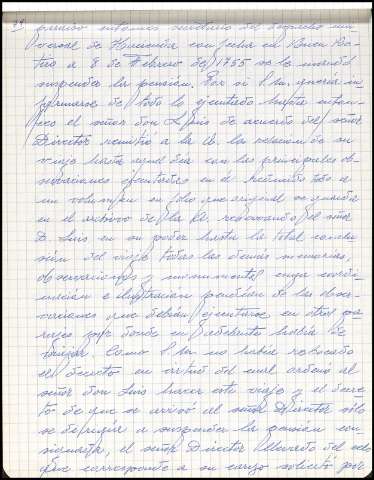 79
previo informe
versal de Hacienda con fecha en Buen Re-
tiro a 8 de Febrero de 1755 se le mandó
suspender la pensión. Por si S.M. quería in-
formarse de todo lo ejecutado hasta enton-
ces el señor don Luis de acuerdo del señor
Director remitió a la A. la relación de su
viaje hasta aquel día con las principales ob-
servaciones ejecutadas en el
un volumen en folio que original se guarda
en el archivo de la A. reservando el señor
D. Luis en su poder hasta la total conclu-
sión del viaje todas las demás memorias,
observaciones y monumentos cuya coordi-
nación e ilustración pendían de las obser-
vaciones que debían ejecutarse en otros pa-
rajes por donde en adelante había de
viajar. Como S.M. no había revocado
el decreto en virtud del cual ordenó al
señor don Luis hacer este viaje y el decre-
to de que se avisó al señor Director sólo
se dirigía a suspender la pensión con-
signada, el señor Director llevado del celo
que corresponde a su cargo solicitó por